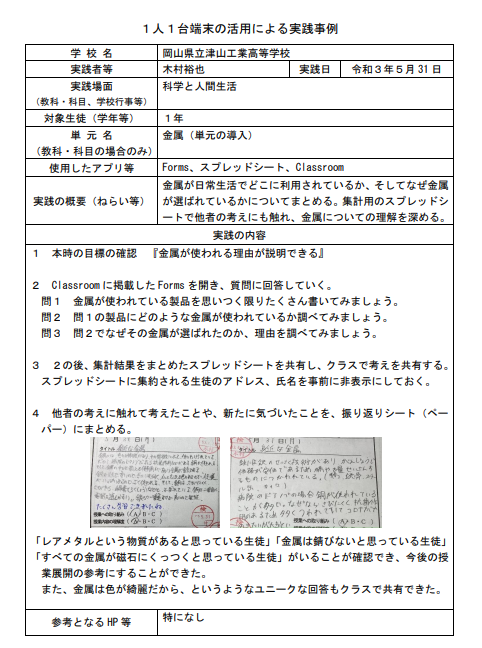 １人１台端末の活用による実践事例
学 校 名　岡山県立津山工業高等学校
実践者等　木村裕也　実践日　令和３年５月31日
実践場面　科学と人間生活
（教科・科目、学校行事等）
対象生徒（学年等）　１年
単 元 名　金属（単元の導入）
（教科・科目の場合のみ）
使用したアプリ等　Forms、スプレッドシート、Classroom
実践の概要（ねらい等）　金属が日常生活でどこに利用されているか、そしてなぜ金属
が選ばれているかについてまとめる。集計用のスプレッドシ
ートで他者の考えにも触れ、金属についての理解を深める。
実践の内容
１　本時の目標の確認　『金属が使われる理由が説明できる』
２　Classroomに掲載したFormsを開き、質問に回答していく。
問１　金属が使われている製品を思いつく限りたくさん書いてみましょう。
問２　問１の製品にどのような金属が使われているか調べてみましょう。
問３　問２でなぜその金属が選ばれたのか、理由を調べてみましょう。
３　２の後、集計結果をまとめたスプレッドシートを共有し、クラスで考えを共有する。
スプレッドシートに集約される生徒のアドレス、氏名を事前に非表示にしておく。
４　他者の考えに触れて考えたことや、新たに気づいたことを、振り返りシート（ペー
パー）にまとめる。
「レアメタルという物質があると思っている生徒」「金属は錆びないと思っている生徒」
「すべての金属が磁石にくっつくと思っている生徒」がいることが確認でき、今後の授
業展開の参考にすることができた。
また、金属は色が綺麗だから、というようなユニークな回答もクラスで共有できた。
参考となるHP等　特になし